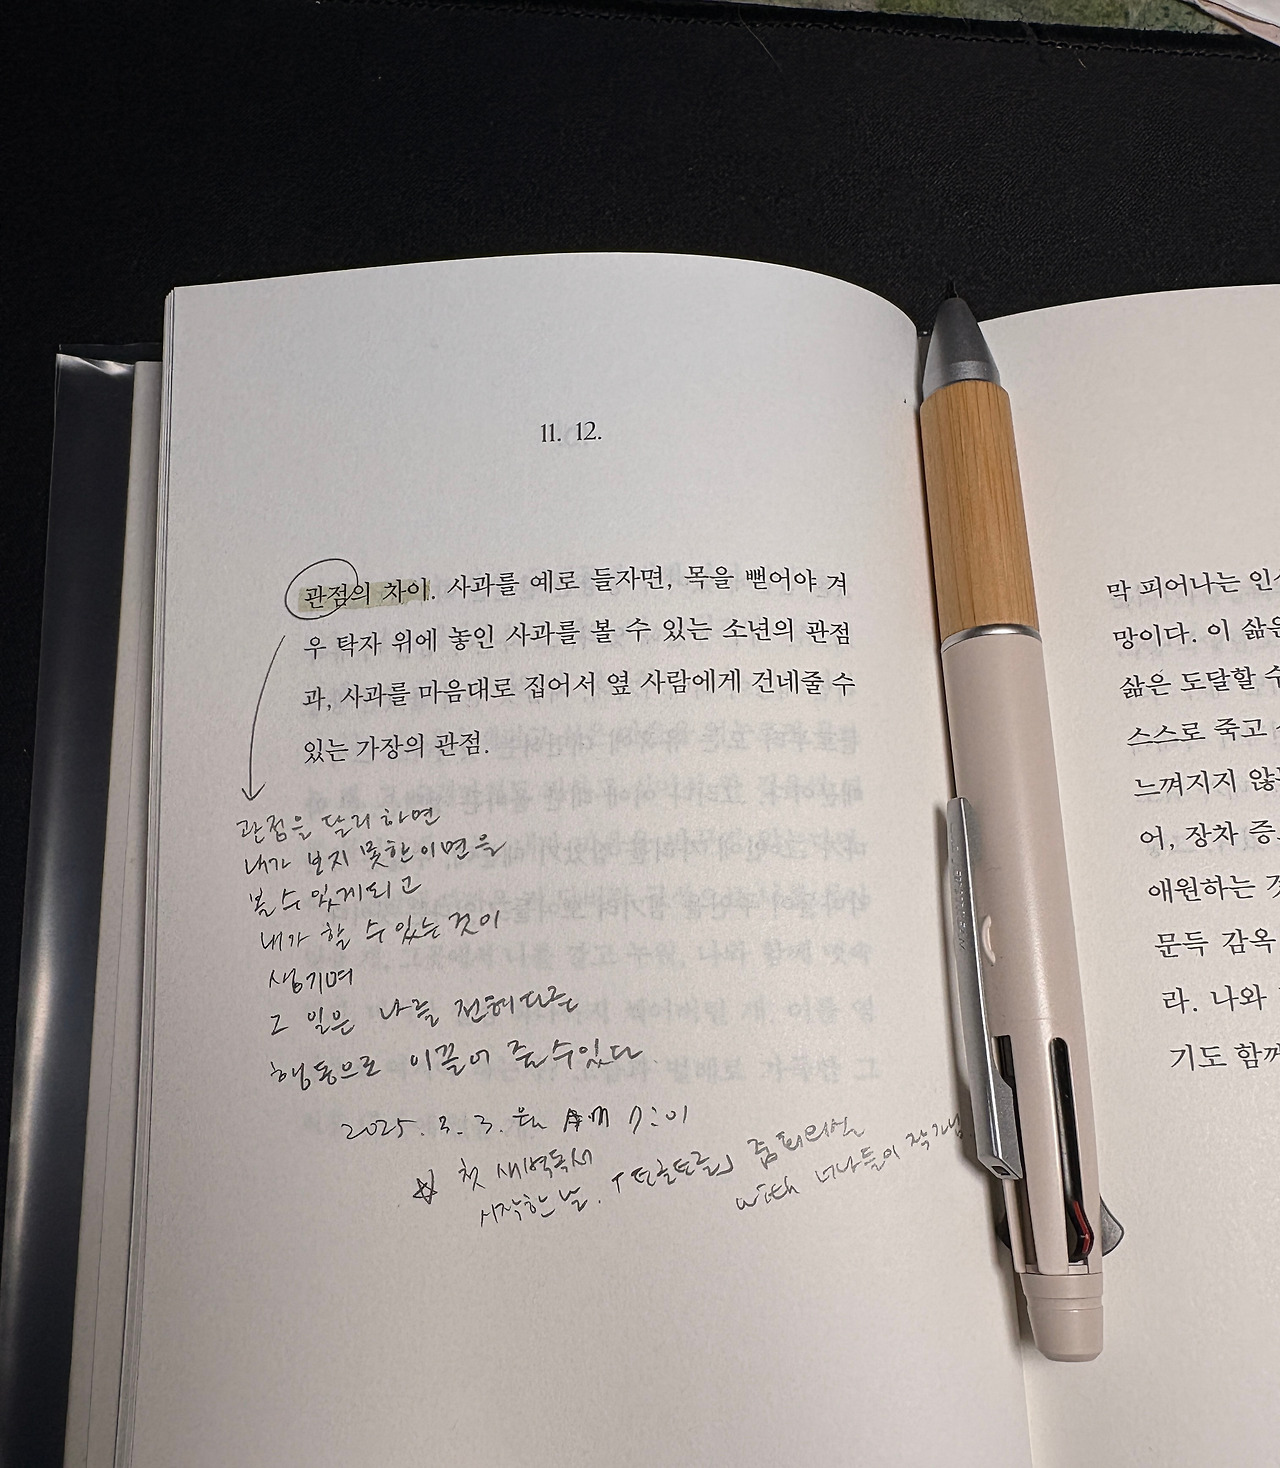 11. 12.
관점의 차이. 사과를 예로 들자면, 목을 뻗어야 겨
우 탁자 위에 놓인 사과를 볼 수 있는 소년의 관점
과, 사과를 마음대로 집어서 옆 사람에게 건네줄 수
있는 가장의 관점.
관점을 달리 하면
내가 보지 못한 이면을
볼 수 있게되고
내가 할 수 있는 것이
생기며
그 일은 나를 전혀 다른
행동으로 이끌어 줄 수 있다.
2025. 3. 3. 월
첫 새벽독서
시작한 날.
with
막 피어나는
망이다. 이 삶은
삶은 도달할 수
스스로 죽고
느껴지지
어, 장차
애원하는
문득 감옥
라. 나와
기도 함께